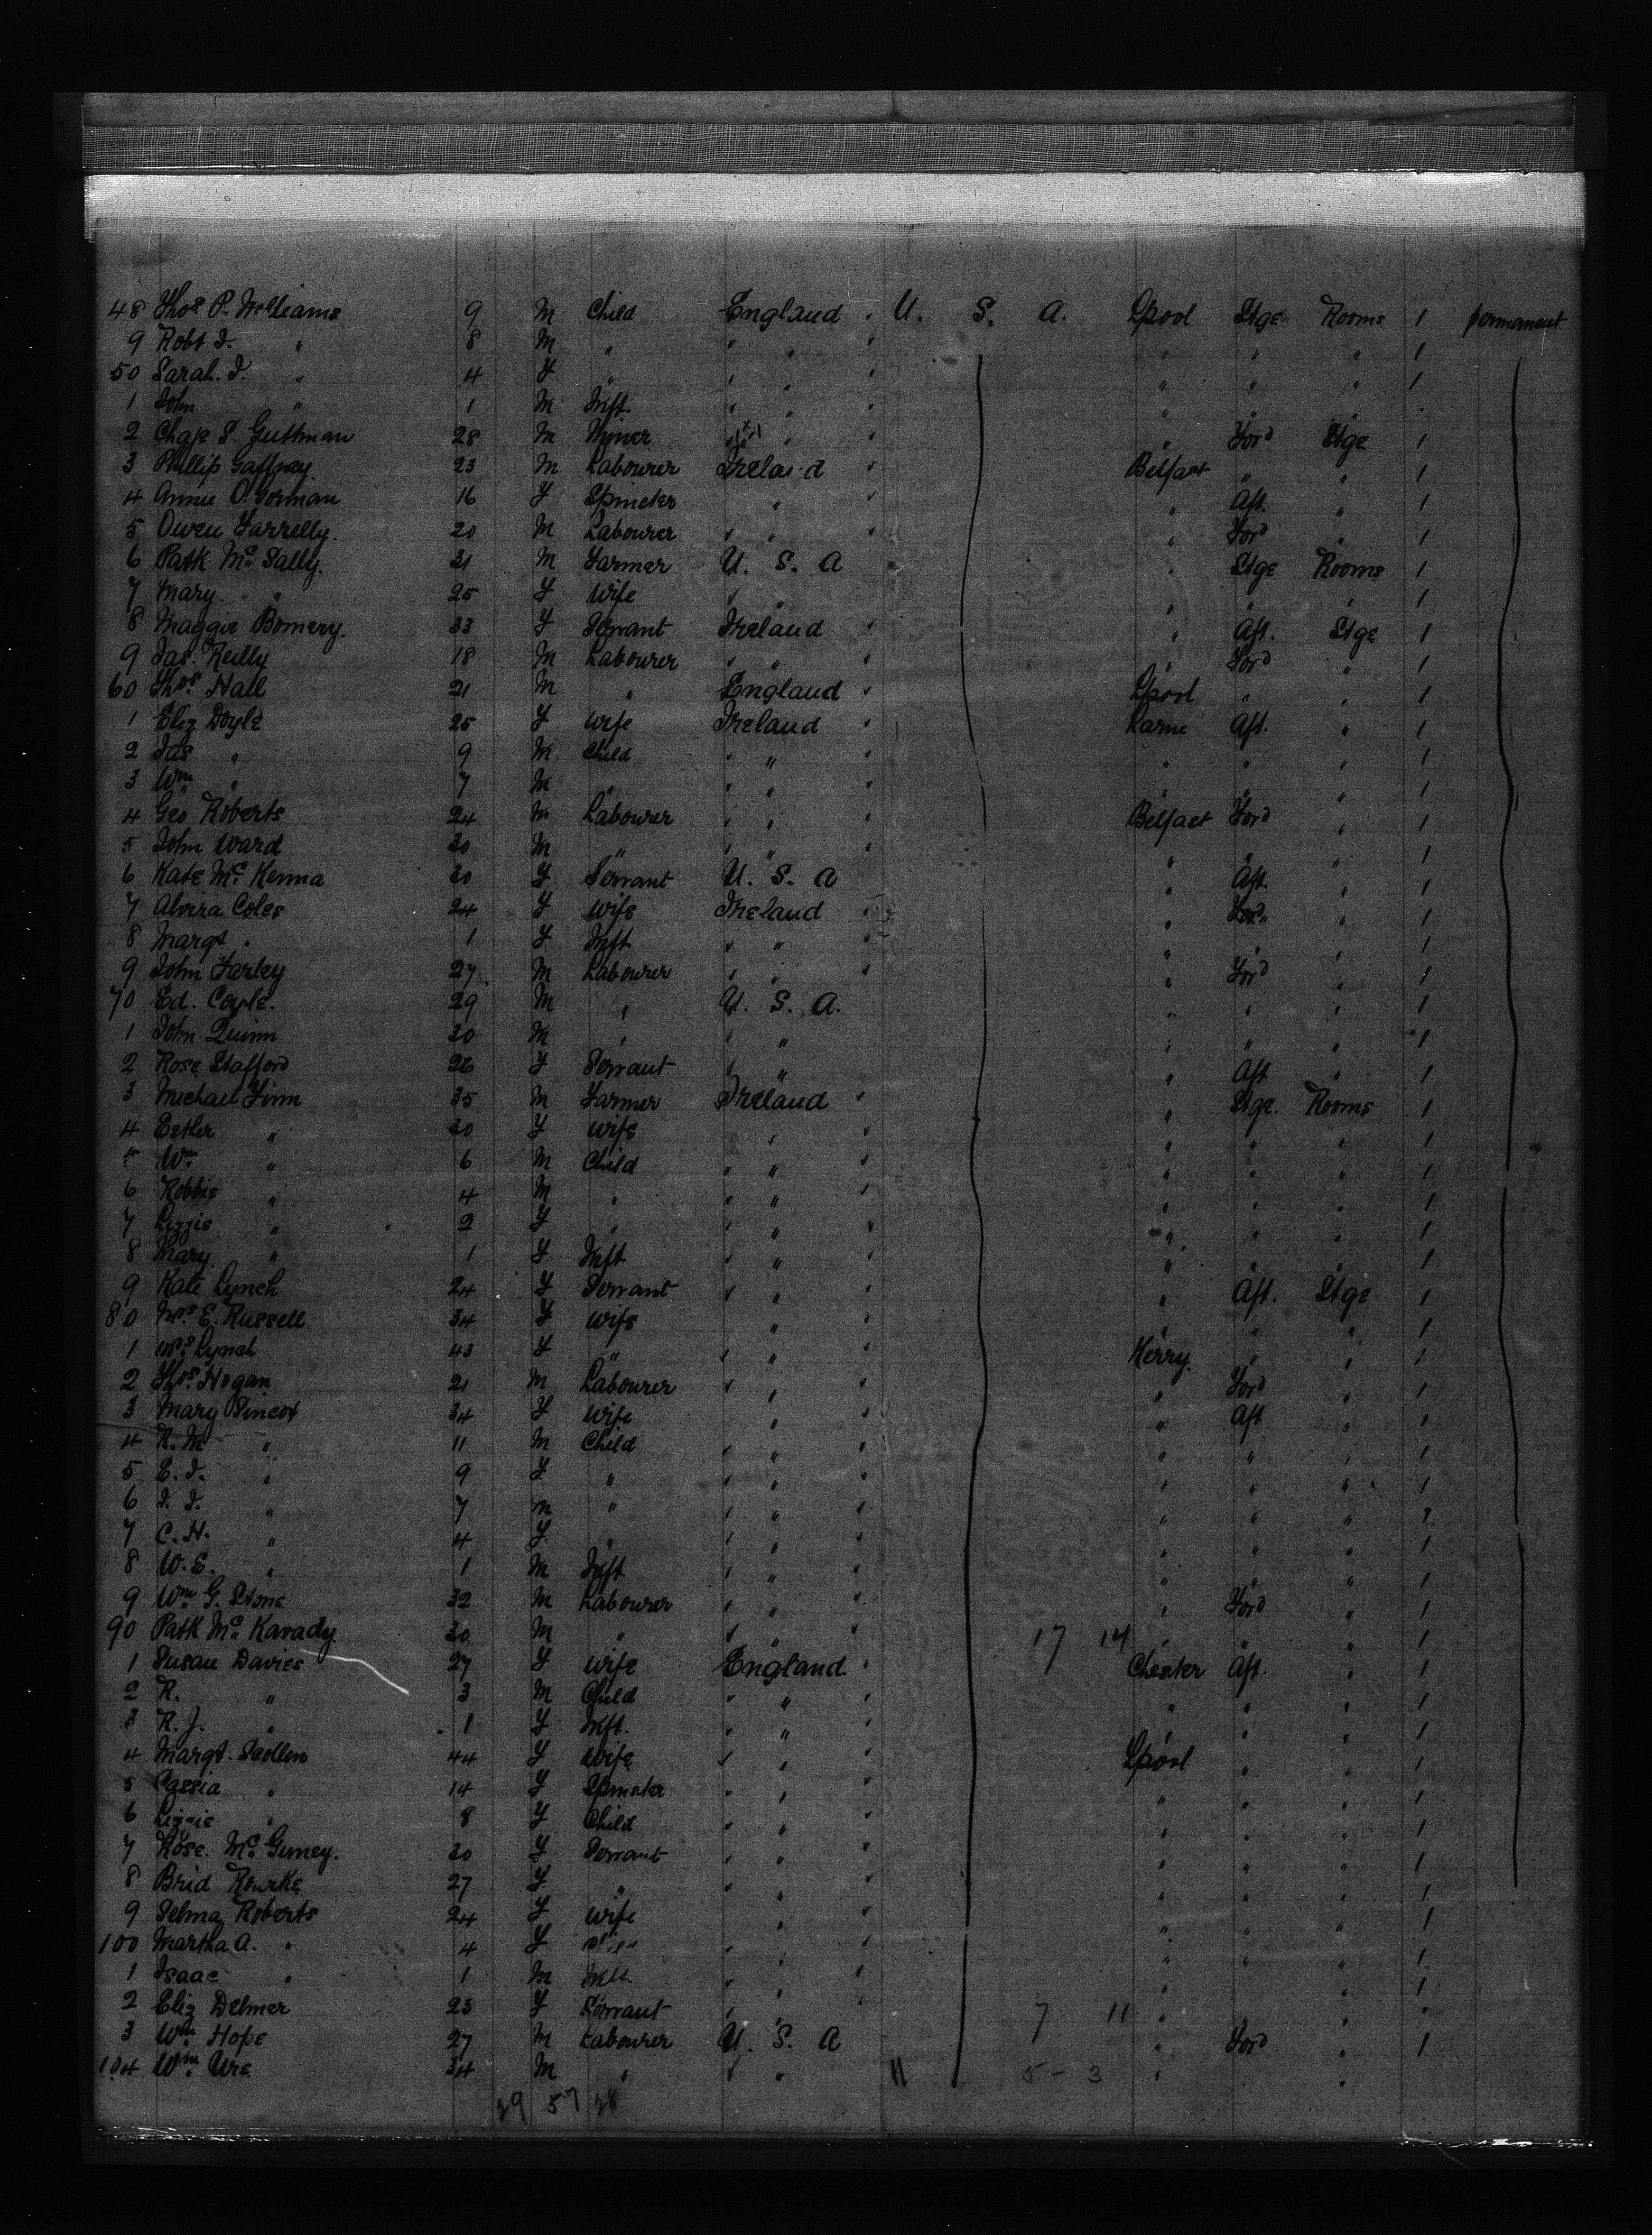 48 Thos P. Williams 9 M Child England " U. S. A. Lpool Stge Rooms 1 permanent
9 Robt J. " 8 M " " " " " " " 1
50 Sarah. J. " 4 F " " " " " " " 1
1 John " 1 M Inft. " " " " " "
2 Chas S. Guttman 28 M Miner " " " " Ford Stge 1
3 Phillip Gaffney 23 M Labourer Ireland " Belfast " " 1
4 Annie O'Gorman 16 F Spinster " " " Aft. " 1
5 Owen Farrelly. 20 M Labourer " " " " Ford " 1
6 Patk Mc Sally. 31 M Farmer U. S. A " Stge Rooms 1
7 Mary " 25 F Wife " " " " " 1
8 Maggie Bomery. 33 F Servant Ireland " " Aft. Stge 1
9 Jas. Reilly 18 M Labourer " " " Ford " 1
60 Thos. Hall 21 M " England " Lpool " " 1
1 Eliz Doyle 25 F Wife Ireland " Larne Aft. " 1
2 Jas " 9 M Child " " " " " " 1
3 Wm " 7 M " " " " " " " 1
4 Geo Roberts 24 M Labourer " " " Belfast Ford " 1
5 John Ward 30 M " " " " " " " 1
6 Kate Mc Kenna 30 F Servant U. S. A " Aft. " 1
7 Alvira Coles 24 F Wife Ireland " " " 1
8 Margt " 1 F Inft " " " " " " 1
9 John Farley 27 M Labourer " " " " Ford " 1
70 Ed. Coyle. 29 M " U. S. A. " " " 1
1 John Quinn 30 M " " " " " " 1
2 Rose Stafford 26 F Servant " " " Aft " 1
3 Michael Finn 35 M Farmer Ireland " " Stge. Rooms 1
4 Esther " 30 F Wife " " " " " 1
5 Wm " 6 M Child " " " " " " 1
6 Robbie " 4 M " " " " " " " 1
7 Lizzie " 2 F " " " " " " " 1
8 Mary " 1 F Inft " " " " " " 1
9 Kate Lynch 24 F Servant " " " Aft. Stge 1
80 Mrs E. Russell 34 F Wife " " " " 1
1 Mrs Lynch 43 F " " " " Kerry. " " 1
2 Thos. Hogan 21 M Labourer " " " " Ford " 1
3 Mary 34 F Wife " " " Aft " 1
4 R. M " 11 M Child " " " " " " 1
5 E. J. " 9 F " " " " " " " 1
6 J. J. " 7 M " " " " " " " 1
7 C. H. " 4 F " " " " " " " 1
8 W. E. " 1 M Inft " " " " " " 1
9 Wm G. Stone 32 M Labourer " " " " Ford " 1
90 Patk Mc Kavady. 30 M " " " " 17 14 " " " 1
1 Susan Davies 27 F Wife England " Chester Aft. " 1
2 R. " 3 M Child " " " " " " 1
3 R. J. " 1 F Inft. " " " " " " 1
4 Margt. Scollen 44 F Wife " " " Lpool " " 1
5 Cassia " 14 F Spinster " " " " " " 1
6 Lizzie " 8 F Child " " " " " " 1
7 Rose. Mc Gurney. 30 F Servant " " " " " " 1
8 Brid Rourke 27 F " " " " " " 1
9 Selma Roberts 24 F Wife " " " " " 1
100 Martha A. " 4 F " " " " " " 1
1 Isaac " 1 M Inft. " " " " " 1
2 Eliz Delmer 23 F Servant " " 7 11 " " "
3 Wm Hope 27 M Labourer U. S. A " Ford " 1
104 Wm. Ure 34 M " " " 11 5 - 3 " "
29 57 28